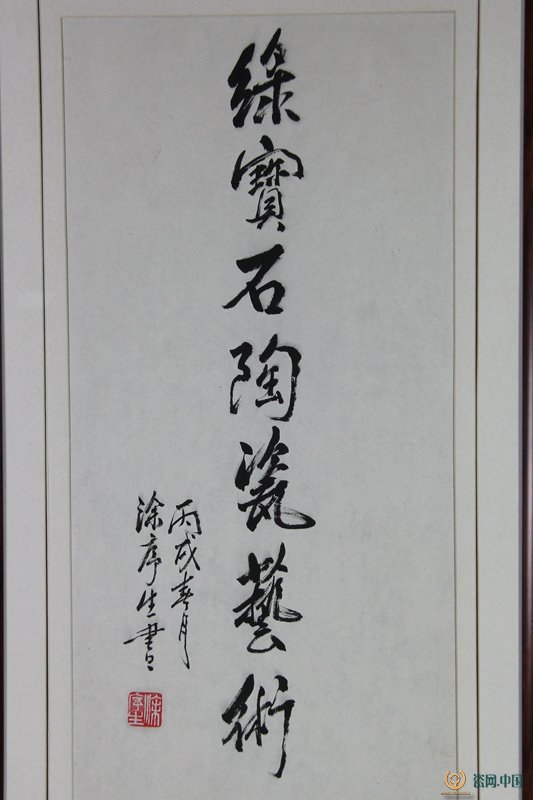 綠寶石陶瓷藝術
丙戌春月
涂序生書
瓷网.中国